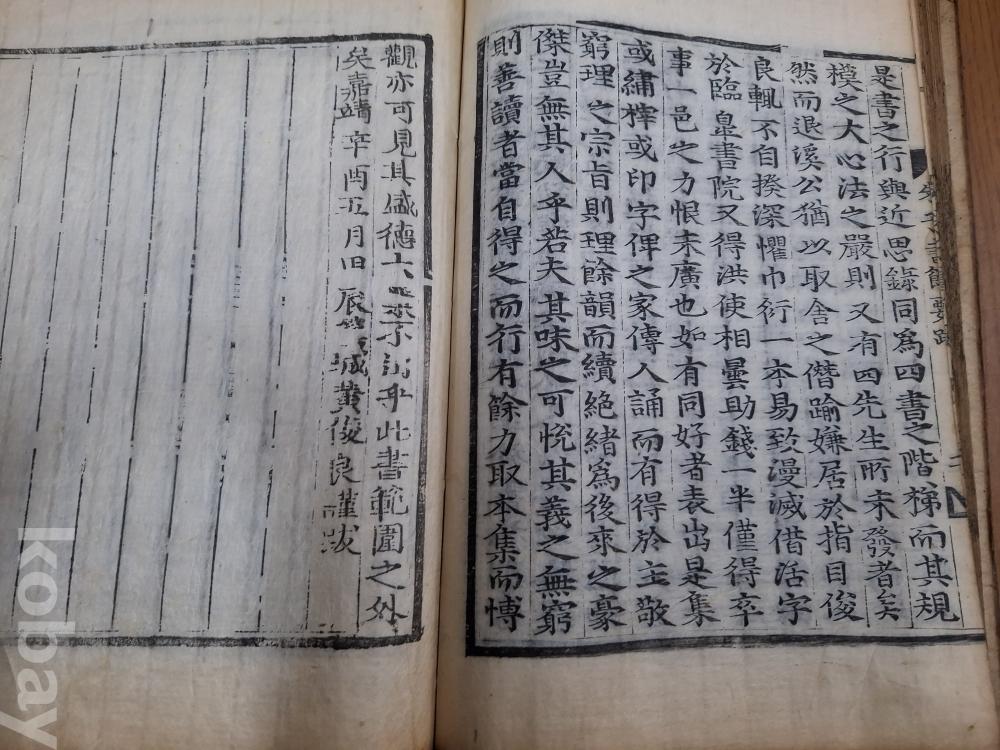 是書之行與近思錄同爲四書之階梯而其規
模之大心法之嚴則又有四先生所未發者矣
然而退溪公猶以取舍之僭踰嫌居於指目俊
良輒不自揆深懼巾衍一本易致漫滅借活字
於臨皐書院又得洪使相曇助錢一半僅得卒
事一邑之力恨未廣也如有同好者表出是集
或繡梓或印字俾之家傳人誦而有得於主敬
窮理之宗旨則理餘韻而續絶緖爲後來之豪
傑豈無其人乎若夫其味之可悅其義之無窮
則善讀者當自得之而行有餘力取本集而博
觀亦可見其盛德大業不出乎此書範圍之外
矣嘉靖辛酉五月日 城黃俊良謹跋
書節要跋
kobay